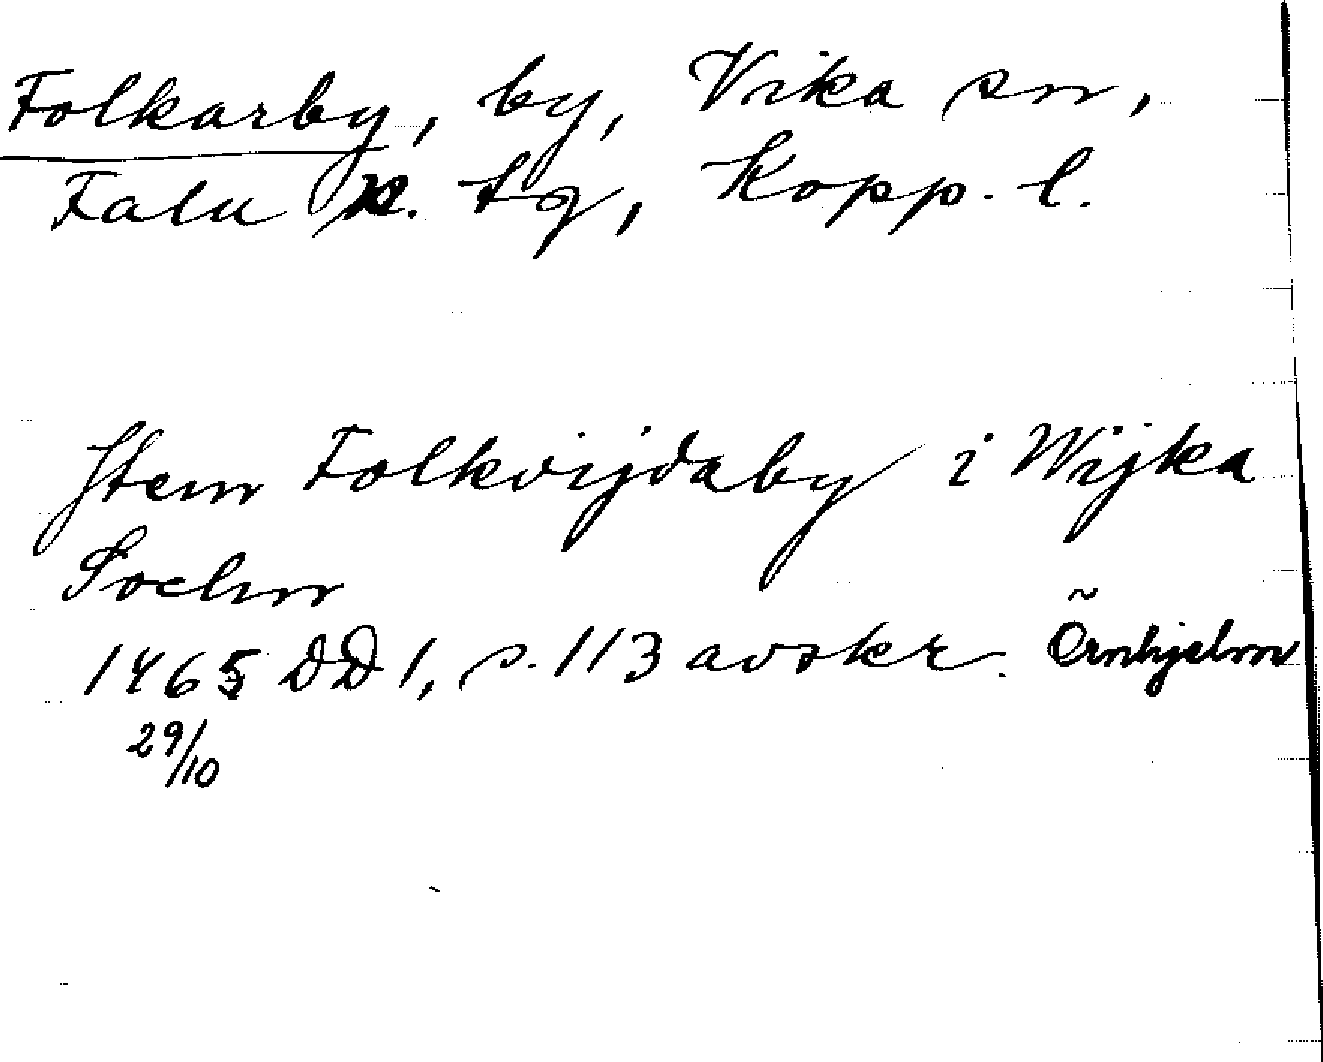 Folkarby, by, Vika sn,
Falu n. tg, Kopp. l.
Jtem Folkvijdaby i Wijka
Sochn
1465 DD 1, s. 113 avskr. Örnhjelm
29/10